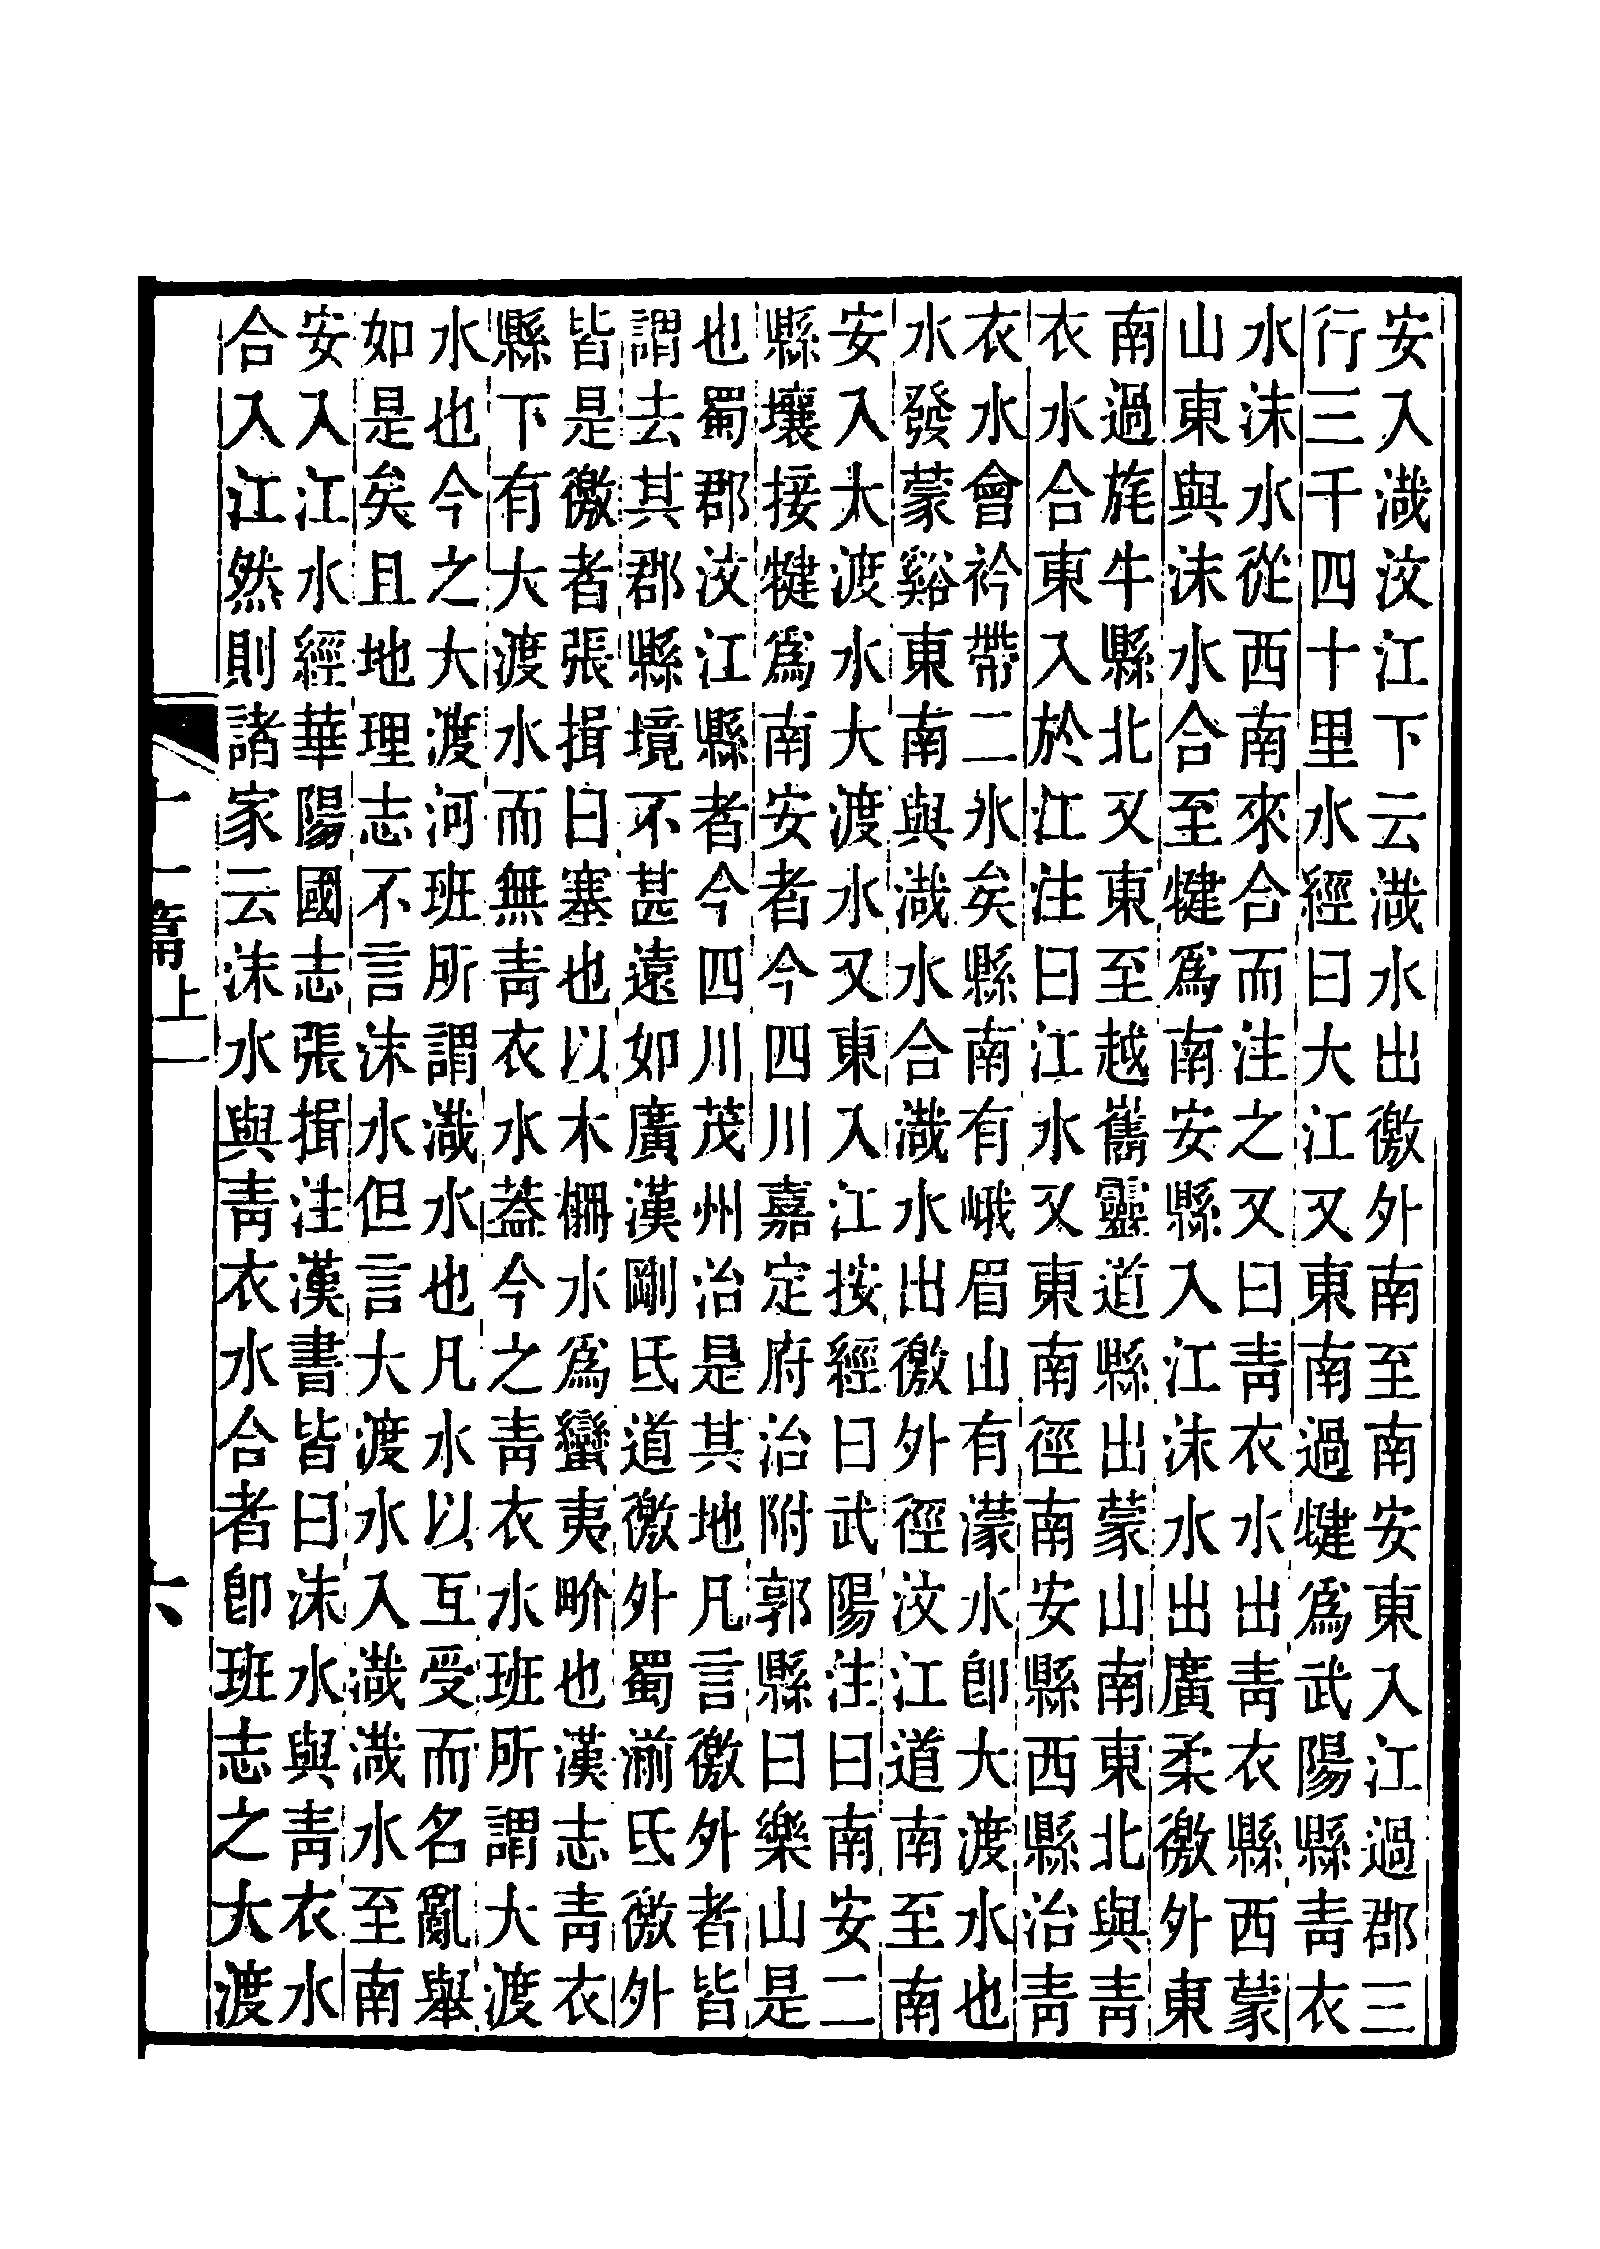 安入渽汶江下云渽水出徼外南至南安東入江過郡三
行三千四十里水經曰大江又東南過犍爲武陽縣青衣
水沬水從西南來合而注之又曰青衣水出青衣縣西蒙
山東與沬水合至犍爲南安縣入江沬水出廣柔徼外東
南過旄牛縣北又東至越巂靈道縣出蒙山南東北與青
衣水合東入於江注曰江水又東南徑南安縣西縣治青
衣水會衿帶二水矣縣南有峨眉山有濛水卽大渡水也
水發蒙谿東南與渽水合渽水出徼外徑汶江道南至南
安入大渡水大渡水又東入江按經曰武陽注曰南安二
縣壤接犍爲南安者今四川嘉定府治附郭縣曰樂山是
也蜀郡汶江縣者今四川茂州治是其地凡言徼外者皆
謂去其郡縣境不甚遠如廣漢剛氐道徼外蜀湔氐徼外
皆是徼者張揖曰塞也以木柵水爲蠻夷畍也漢志青衣
縣下有大渡水而無青衣水葢今之青衣水班所謂大渡
水也今之大渡河班所謂渽水也凡水以互受而名亂舉
如是矣且地理志不言沬水但言大渡水入渽渽水至南
安入江水經華陽國志張揖注漢書皆曰沬水與青衣水
合入江然則諸家云沬水與青衣水合者卽班志之大渡
十一篇上一
六